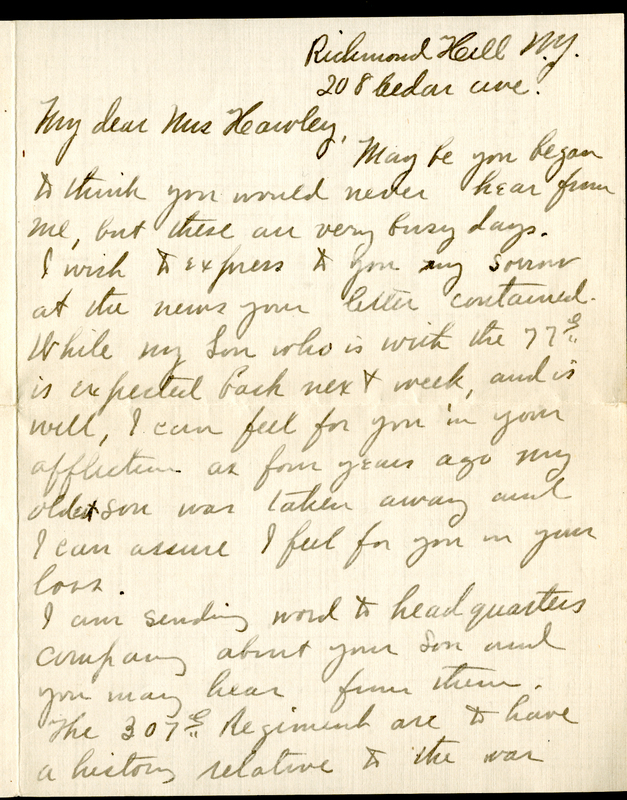 Richmond Hill N.Y.
208 Cedar ave.
My dear Mrs Hawley,
May be you began
to think you would never hear from
me, but these are very busy days.
I wish to express to you my sorrow
at the news your letter contained.
While my Son who is with the 77th
is expected back next week, and is
well, I can feel for you in your
affliction as four years ago my
oldest son was taken away and
I can assure I feel for you in your
loss.
I am sending word to headquarters
company about your son and
you may hear from them.
The 307th Regiment are to have
a history relative to the war